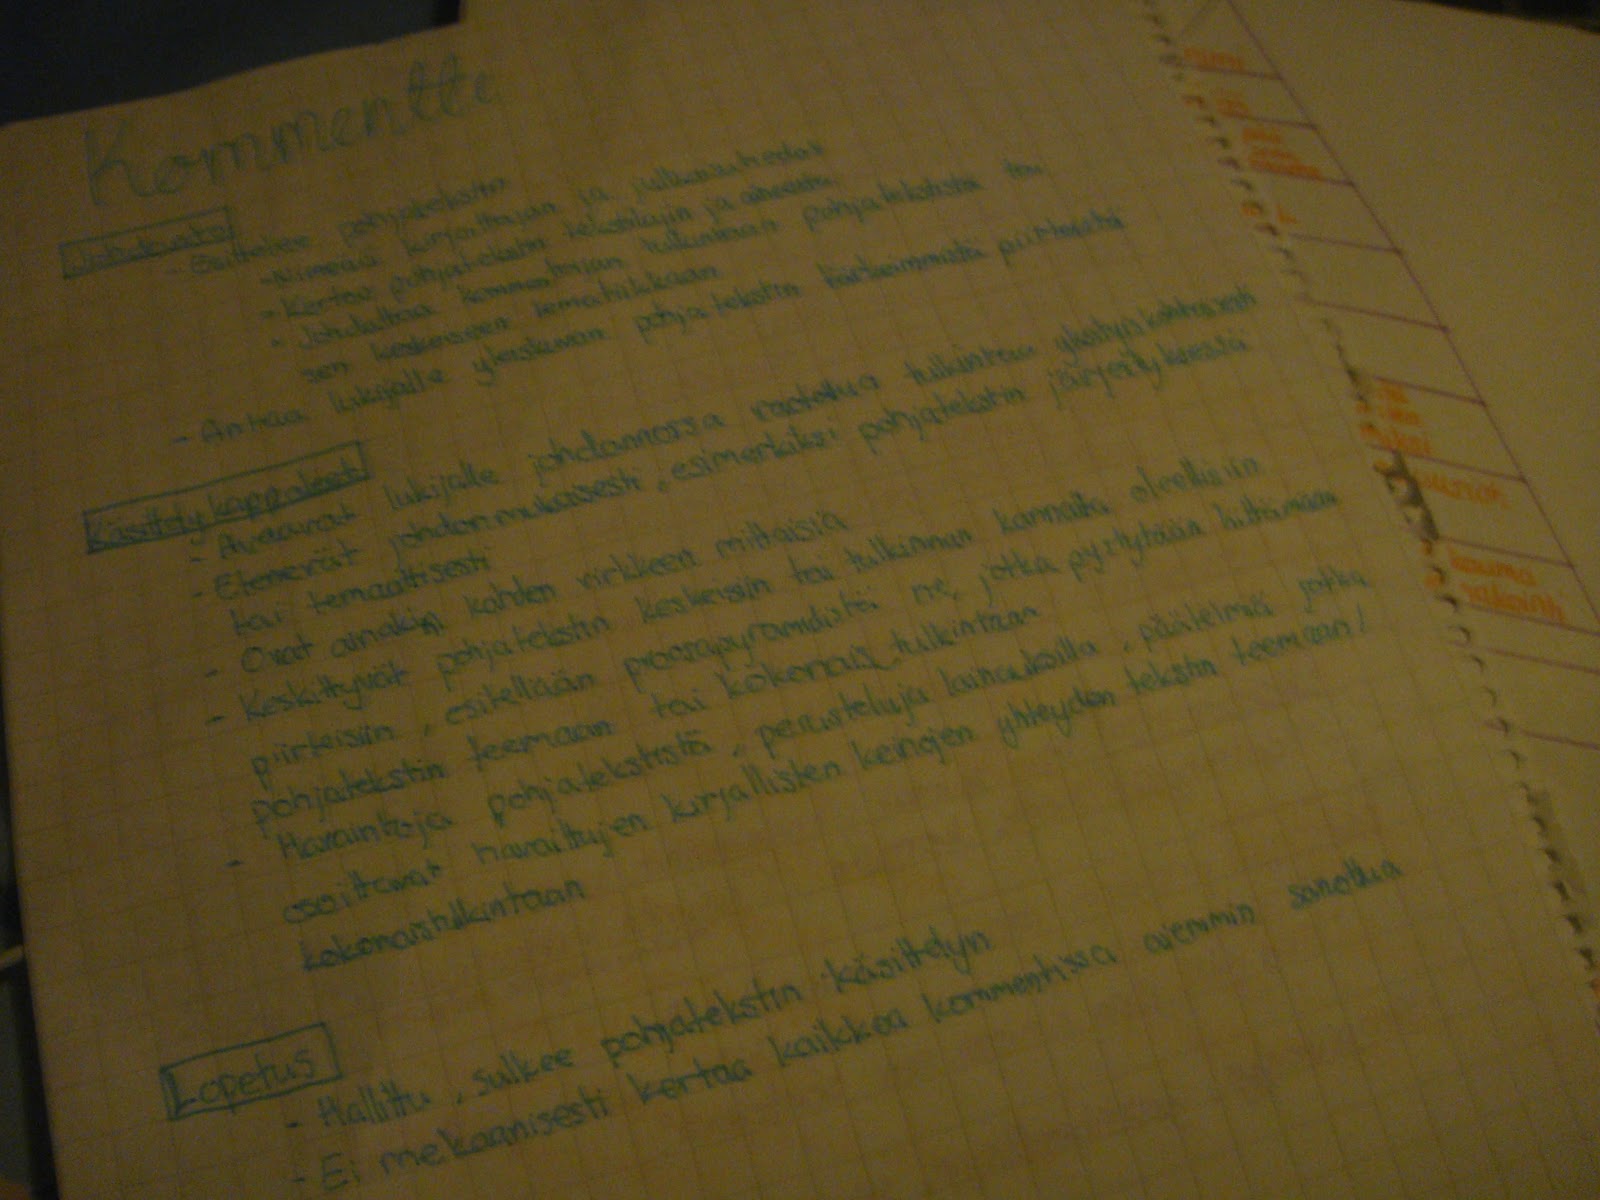 Kommentti
Johdanto
- Esittelee pohjatekstin
- Nimeää kirjoittajan ja julkaisutiedot
- Kertoo pohjatekstin tekstilajin ja aineiston
- Johdattaa kommentoijan tulkintaan pohjatekstistä tai
sen keskeiseen tematiikkaan
- Antaa lukijalle yleiskuvan pohjatekstin tärkeimmistä piirteistä
Käsittelykappaleet
- Avaavat lukijalle johdannossa rajattua tulkintaa yksityiskohtaisesti
- Etenevät johdonmukaisesti, esimerkiksi pohjatekstin järjestyksessä
tai temaattisesti
- Ovat ainakin kahden virkkeen mittaisia
- Keskittyvät pohjatekstin keskeisiin tai tulkinnan kannalta oleellisiin
piirteisiin, esitellään proosapyramidista ne, jotka pystytään liittämään
pohjatekstin teemaan tai kokonais tulkintaan
- Havaintoja pohjatekstistä, perusteluja lainauksilla, päätelmiä jotka
osoittavat havaittujen kirjallisten keinojen yhteyden tekstin teemaan/
kokonaistulkintaan
Lopetus
- Hallittu, sulkee pohjatekstin käsittelyn
- Ei mekaanisesti kertaa kaikkea kommentissa aiemmin sanottua